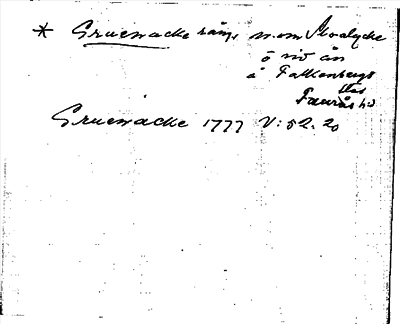 * Gruenacke räng n.om Skoalycke
ö vid ån
å Falkenbergs
Faurås hd
Gruenacke 1777 V: 52. 20